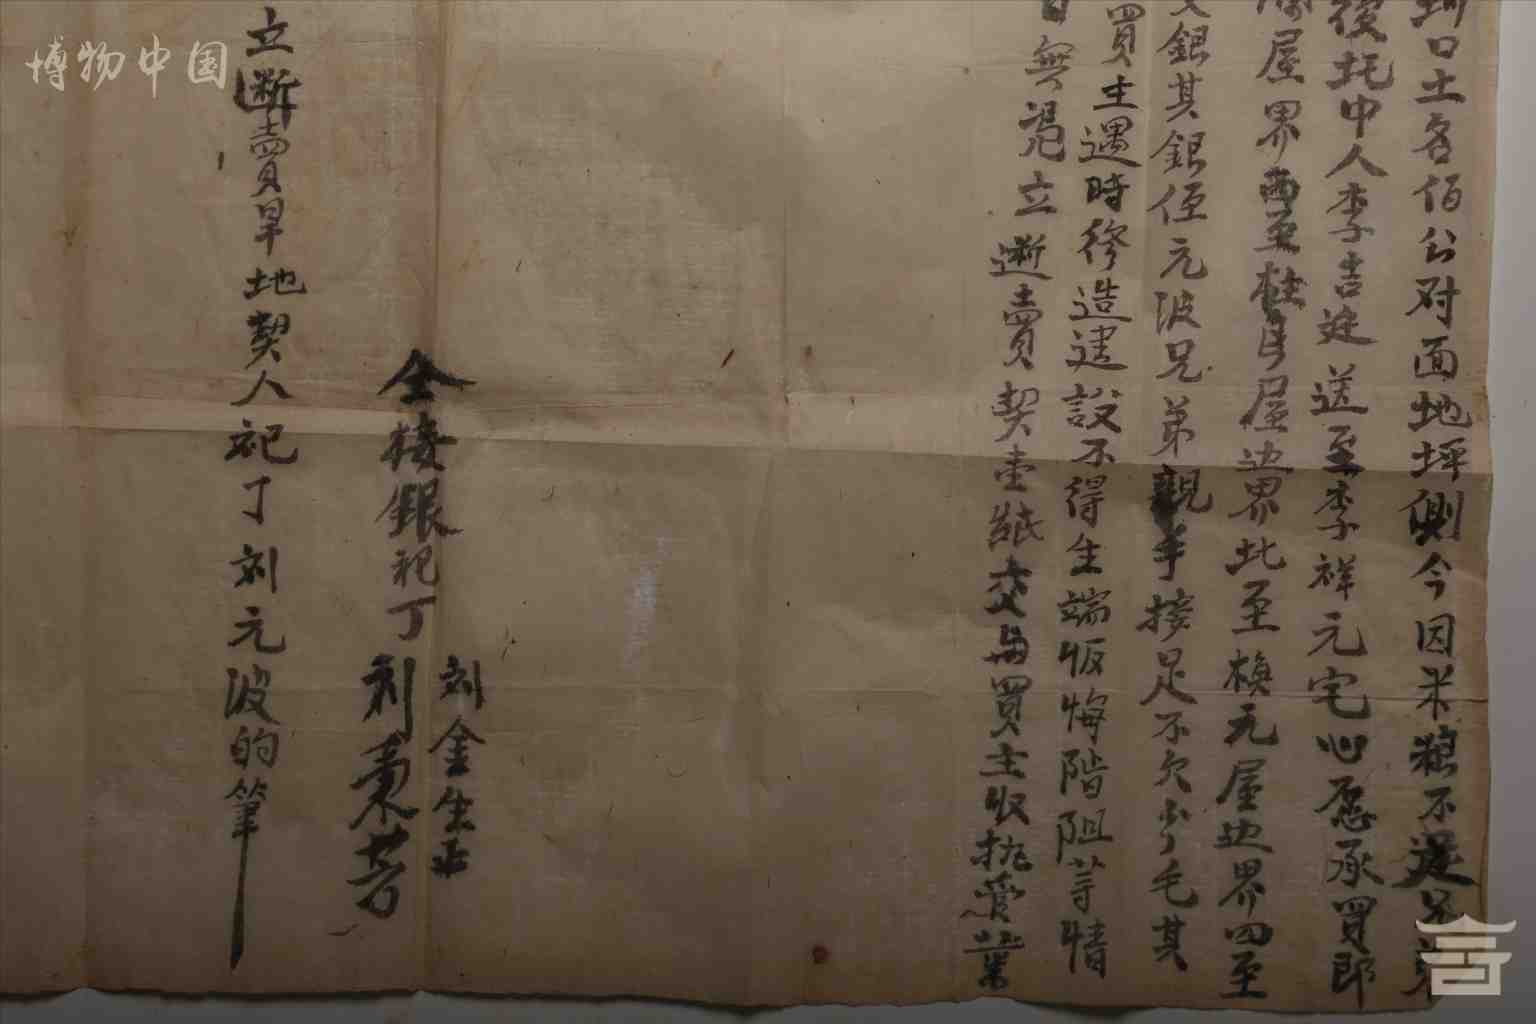 口土名佰公对面地坪側今因米粮不足兄弟
後託中人李吉廷送至李祥元宅心愿承買即
屋界西至桂月屋边界北至楨元屋边界四至
銀其銀侄元波兄弟親手接足不欠少毛其
買主遇時修造建設不得生端返悔階阻等情
無憑立断賣契壹紙交与買主收執管業
仝接銀祀丁
刘金生
刘東芳
立断賣旱地契人祀丁刘元波的筆
博物中国